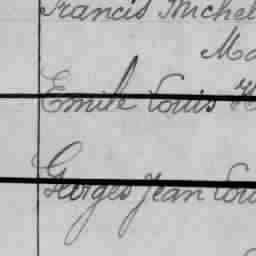 Francis Michel
Emile Louis
Georges Jean